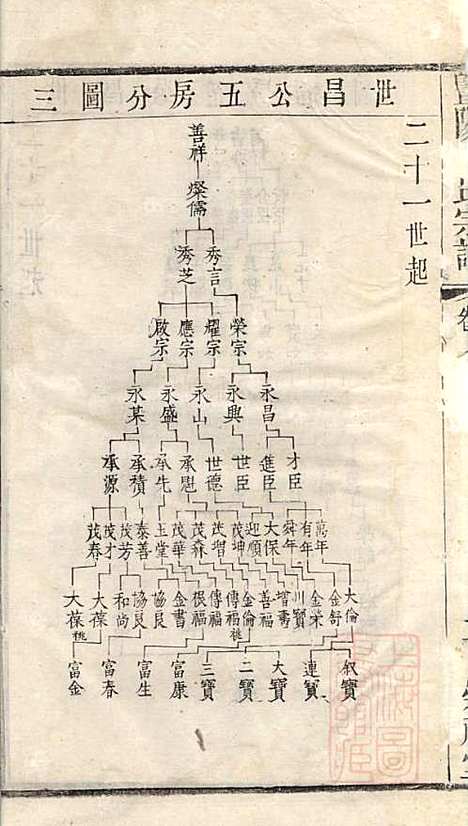 世昌公五房分圖三
二十一世起
善祥
燦儒
秀言 秀芝
榮宗 耀宗 應宗 啟宗
永昌 永興 永山 永盛 永某
才臣 進臣 世臣 世德 承恩 承先 承積 承源
萬年 有年 舜年 大保 迎順 茂坤 茂增 茂森 茂華 玉堂 泰善 茂芳 茂才 茂春
大倫 金奇 金榮 川寶 增壽 善福 金倫 傳福祧 傳福 根福 金書 協良 協良 和尚 大葆 大葆祧
叙寶 連寶 大寶 二寶 三寶 富康 富生 富春 富金
宗譜